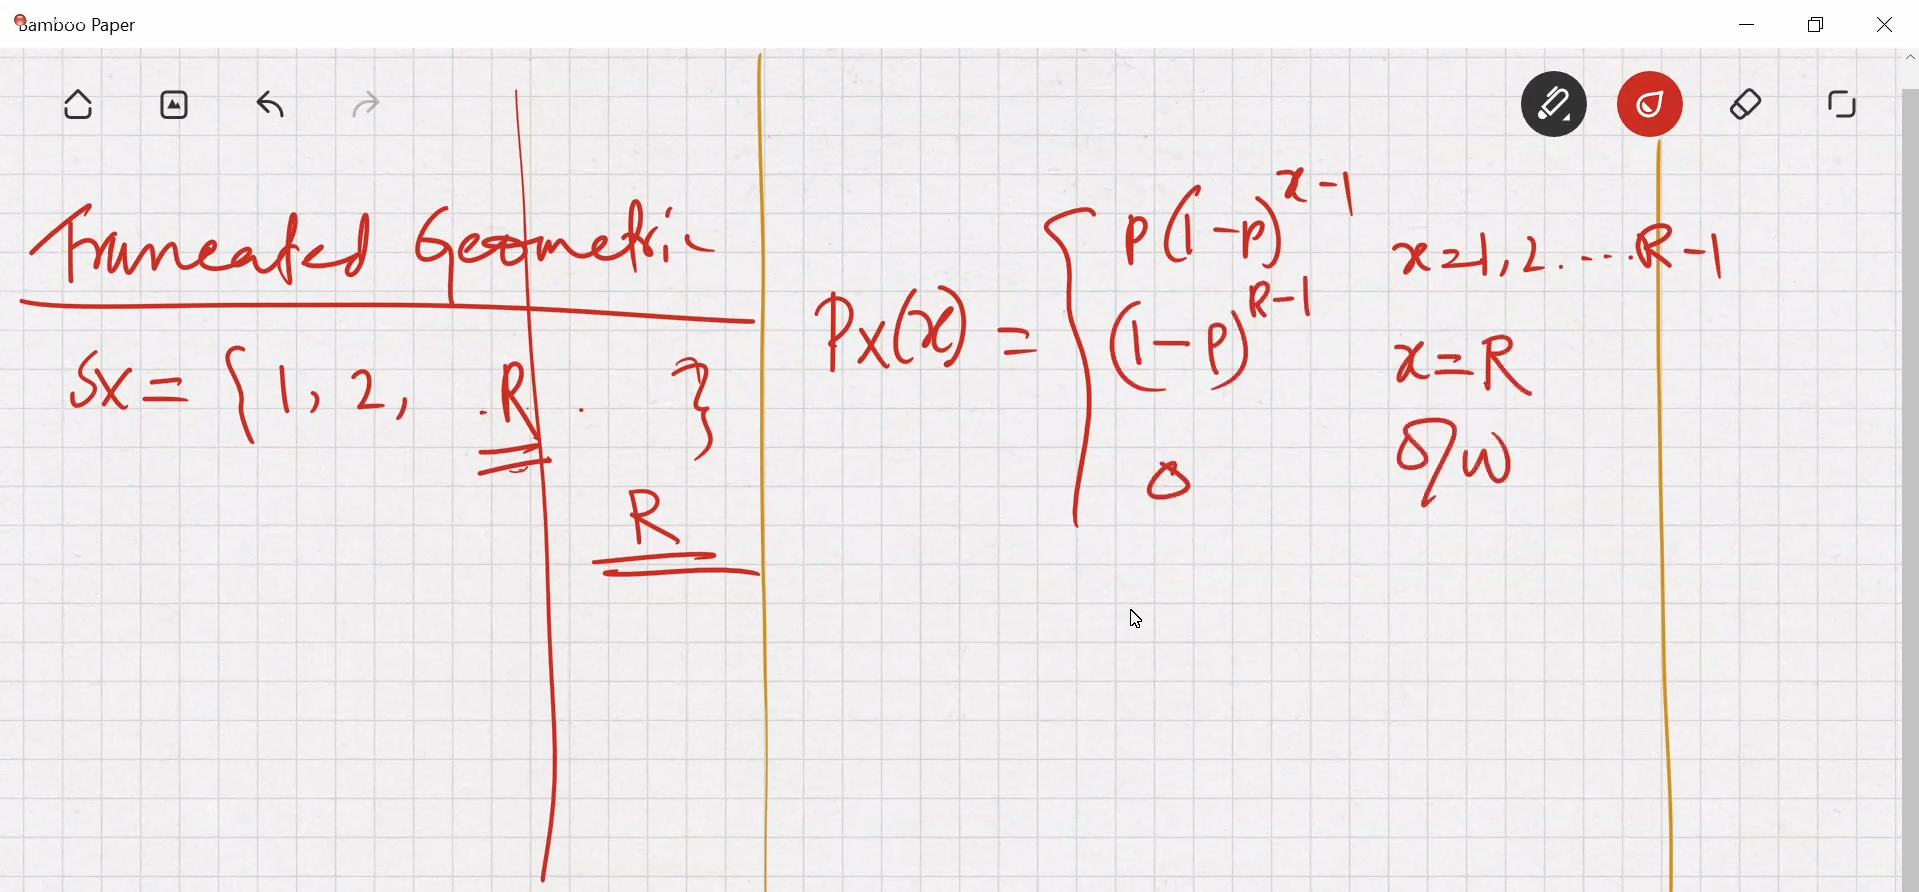 Bamboo Paper
Truncated Geometric
Sx = { 1, 2, . R . }
R
Px(x) = { p(1-p)^{x-1} x=1, 2. ... R-1
(1-p)^{R-1} x=R
0 O/W